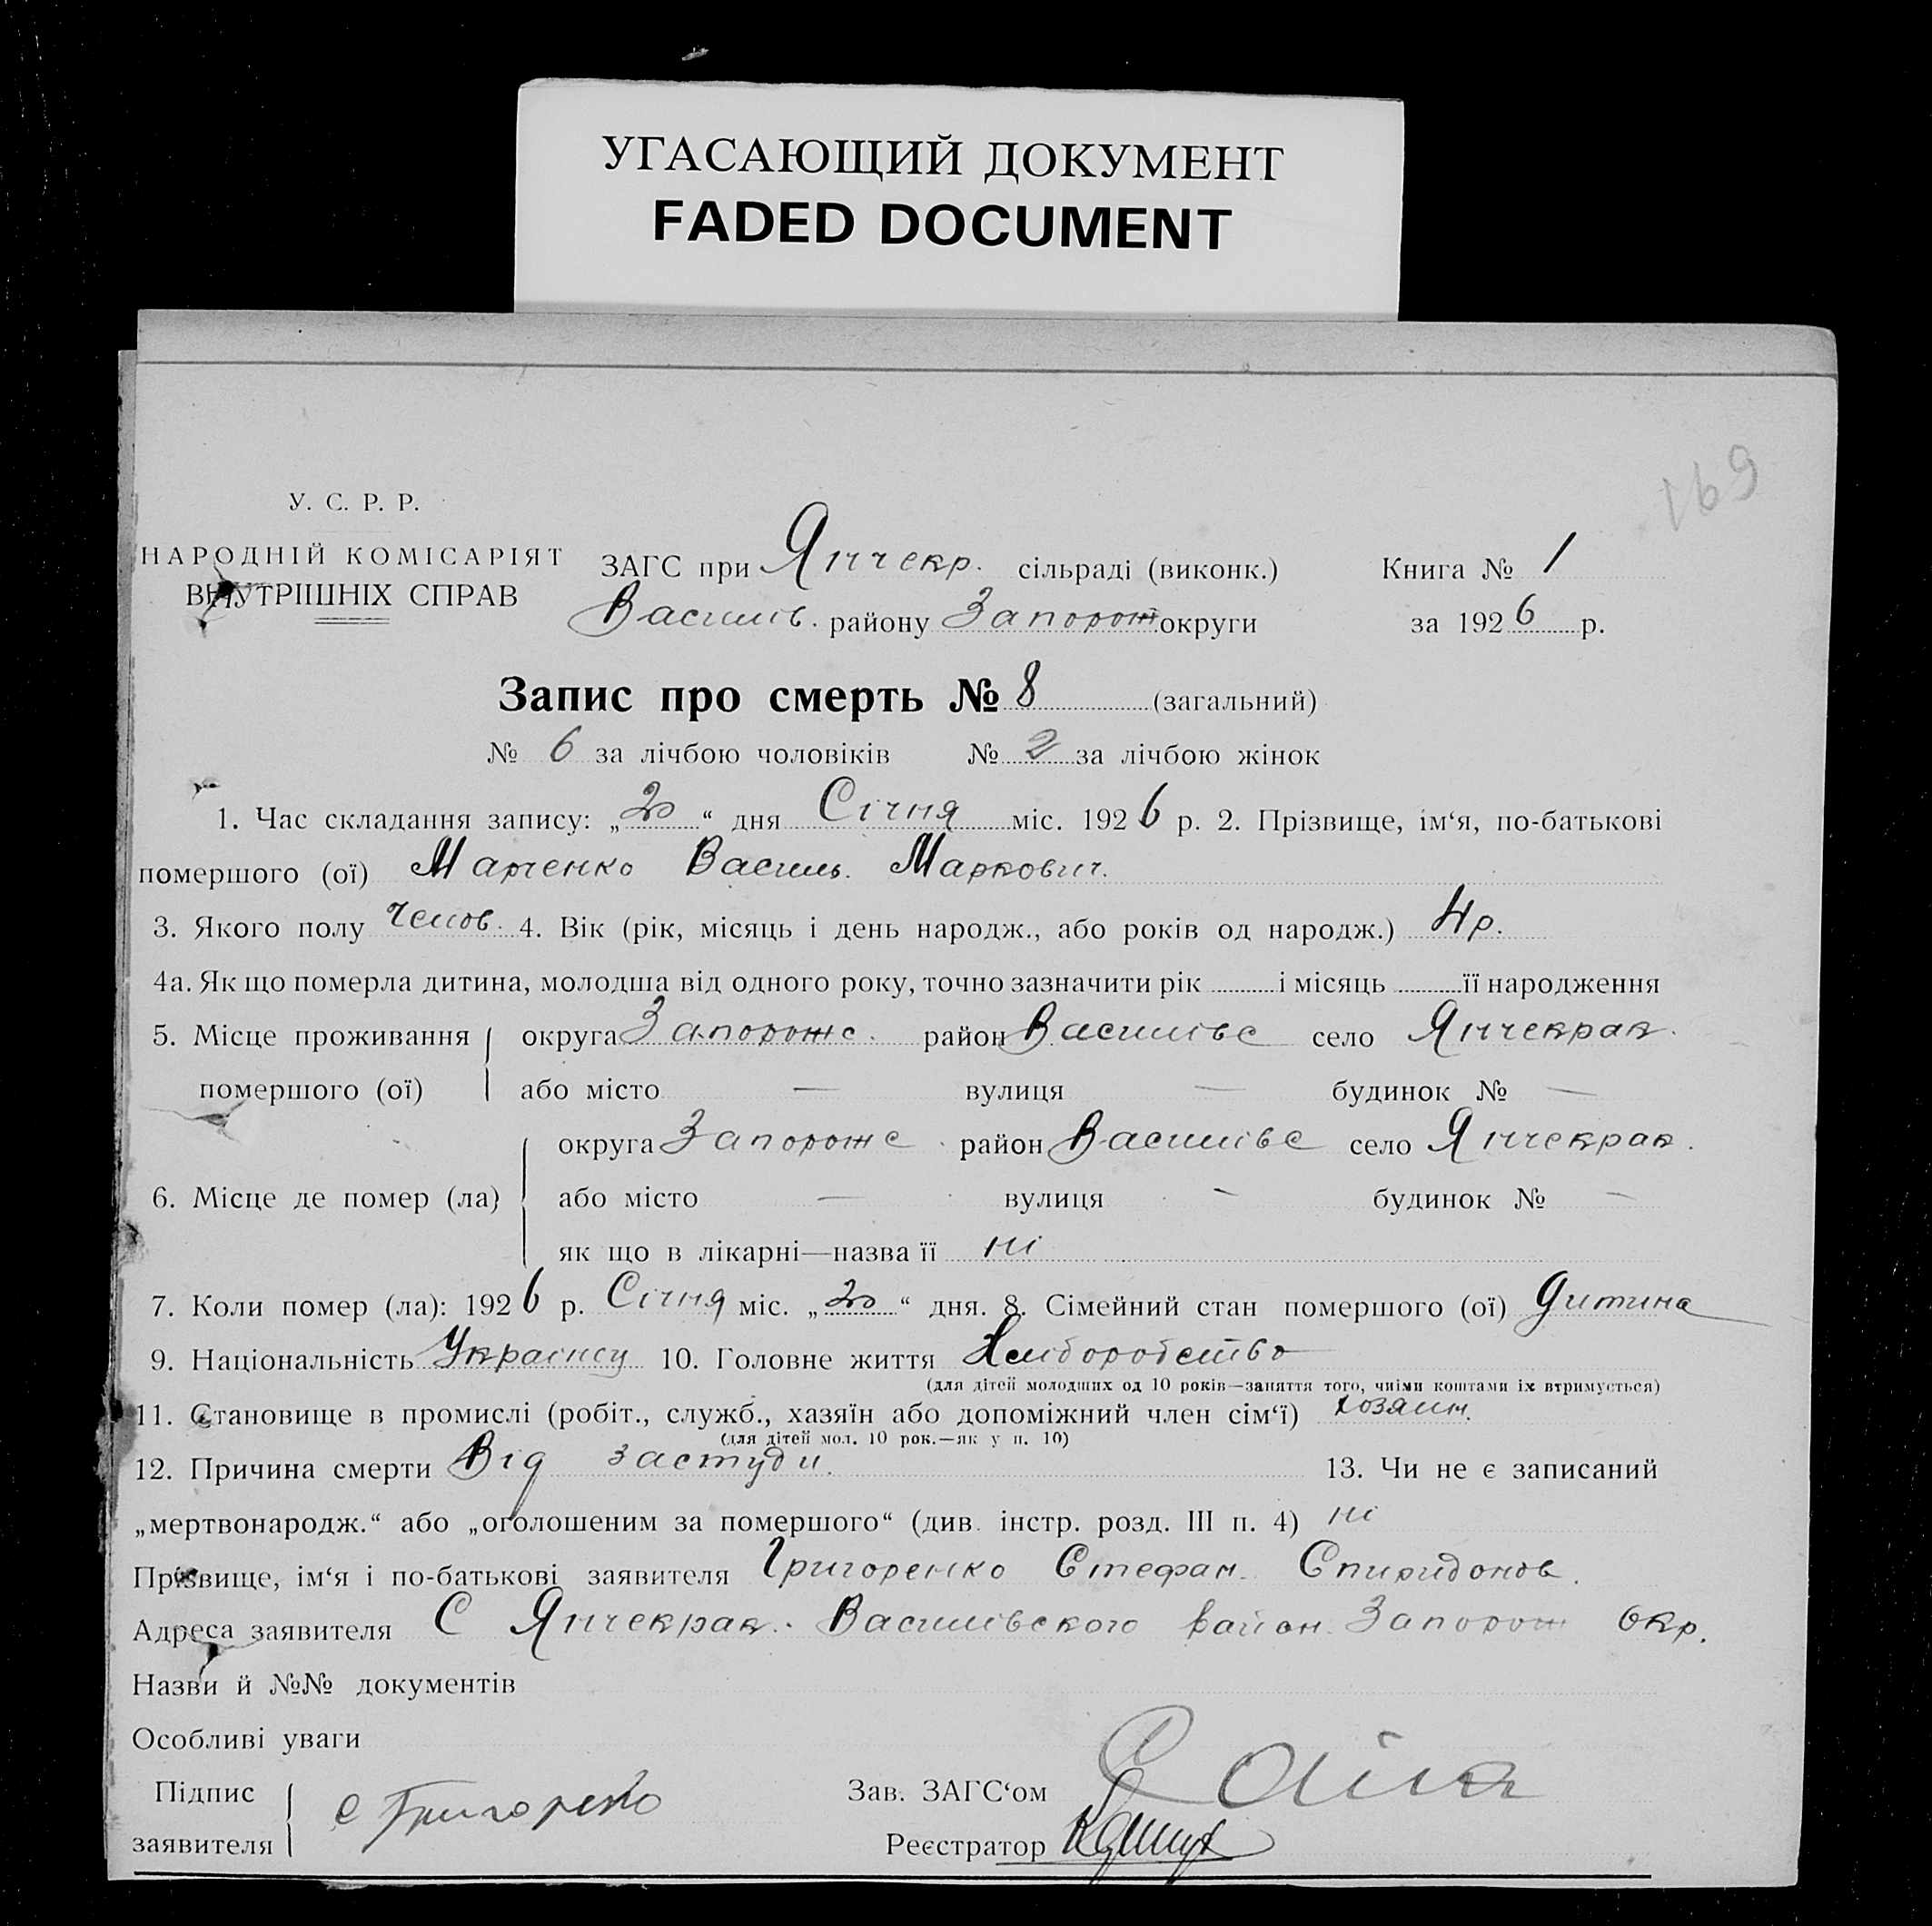 УГАСАЮЩИЙ ДОКУМЕНТ
FADED DOCUMENT
169
У. С. Р. Р.
НАРОДНІЙ КОМІСАРІЯТ
ВНУТРІШНІХ СПРАВ
ЗАГС при Янчекр. сільраді (виконк.)
Василів. району Запорож округи
Книга № 1
за 1926 р.
Запис про смерть № 8 (загальний)
№ 6 за лічбою чоловіків № 2 за лічбою жінок
1. Час складання запису: „20“ дня Січня міс. 1926 р. 2. Прізвище, ім‘я, по-батькові
помершого (ої) Марченко Василь. Маркович.
3. Якого полу Челов. 4. Вік (рік, місяць і день народж., або років од народж.) 4р.
4а. Як що померла дитина, молодша від одного року, точно зазначити рік і місяць її народження
5. Місце проживання округа Запорожс. район Василівс село Янчекрак.
помершого (ої) або місто — вулиця — будинок № —
округа Запорожс район Василівс село Янчекрак.
6. Місце де помер (ла) або місто — вулиця - будинок № —
як що в лікарні—назва її ні
7. Коли помер (ла): 1926 р. Січня міс. „20“ дня. 8. Сімейний стан помершого (ої) дитина
9. Національність 10. Головне життя Хліборобство
(для дітей молодших од 10 років—заняття того, чиїми коштами їх втримується)
11. Становище в промислі (робіт., служб., хазяїн або допоміжний член сім‘ї) хозяин.
(для дітей мол. 10 рок.—як у п. 10)
12. Причина смерти Від застуди. 13. Чи не є записаний
„мертвонародж.“ або „оголошеним за помершого“ (див. інстр. розд. III п. 4) ні
Прізвище, ім‘я і по-батькові заявителя Григоренко Стефан. Спиридонов.
Адреса заявителя С Янчекрак. Василівского район. Запорож окр.
Назви й №№ документів
Особливі уваги
Підпис
заявителя С Григоренко
Зав. ЗАГС‘ом
Реєстратор